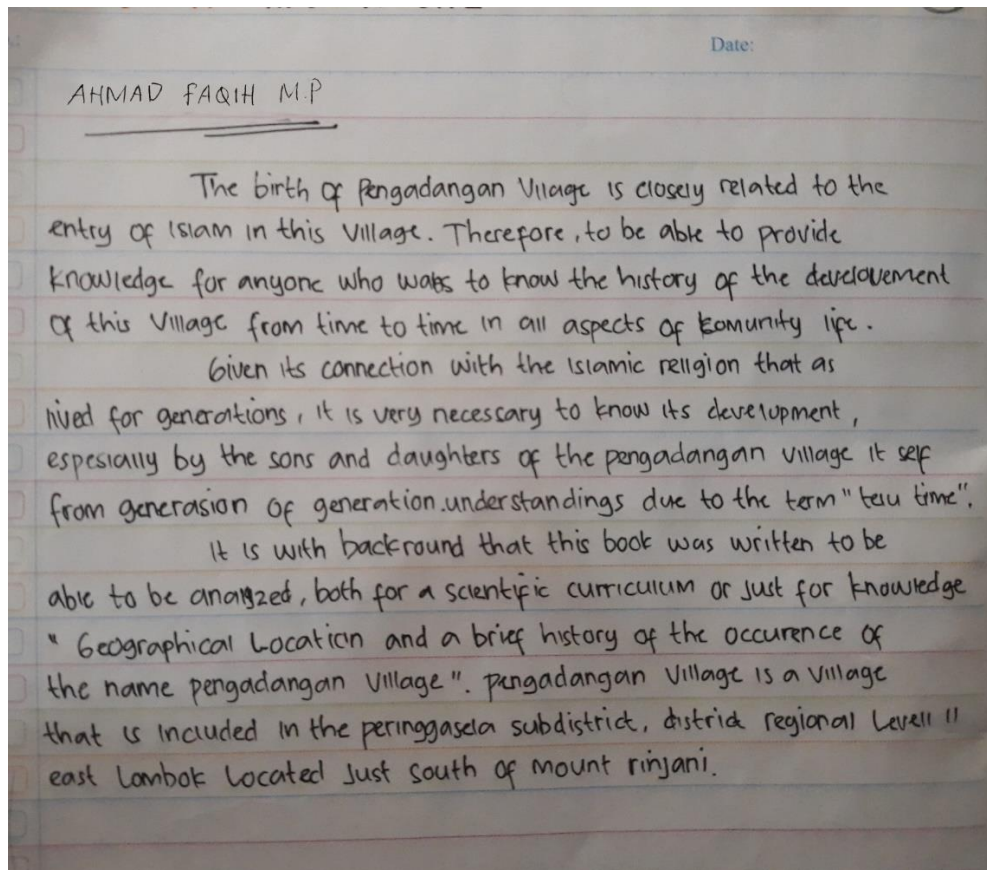 Date:
AHMAD FAQIH M.P
The birth of Pengadangan Village is closely related to the
entry of Islam in this Village. Therefore, to be able to provide
knowledge for anyone who wats to know the history of the develovement
of this Village from time to time in all aspects of komunity life.
Given its connection with the Islamic religion that as
lived for generations, it is very necessary to know its development,
espesially by the sons and daughters of the pengadangan village it self
from generasion of generation.understandings due to the term "telu time".
It is with backround that this book was written to be
able to be analyzed, both for a scientific curriculum or Just for knowledge
" Geographical Location and a brief history of the occurence of
the name pengadangan Village". pengadangan Village is a Village
that is included in the peringgasela subdistrict, district regional Levell II
east Lombok Located Just south of mount rinjani.